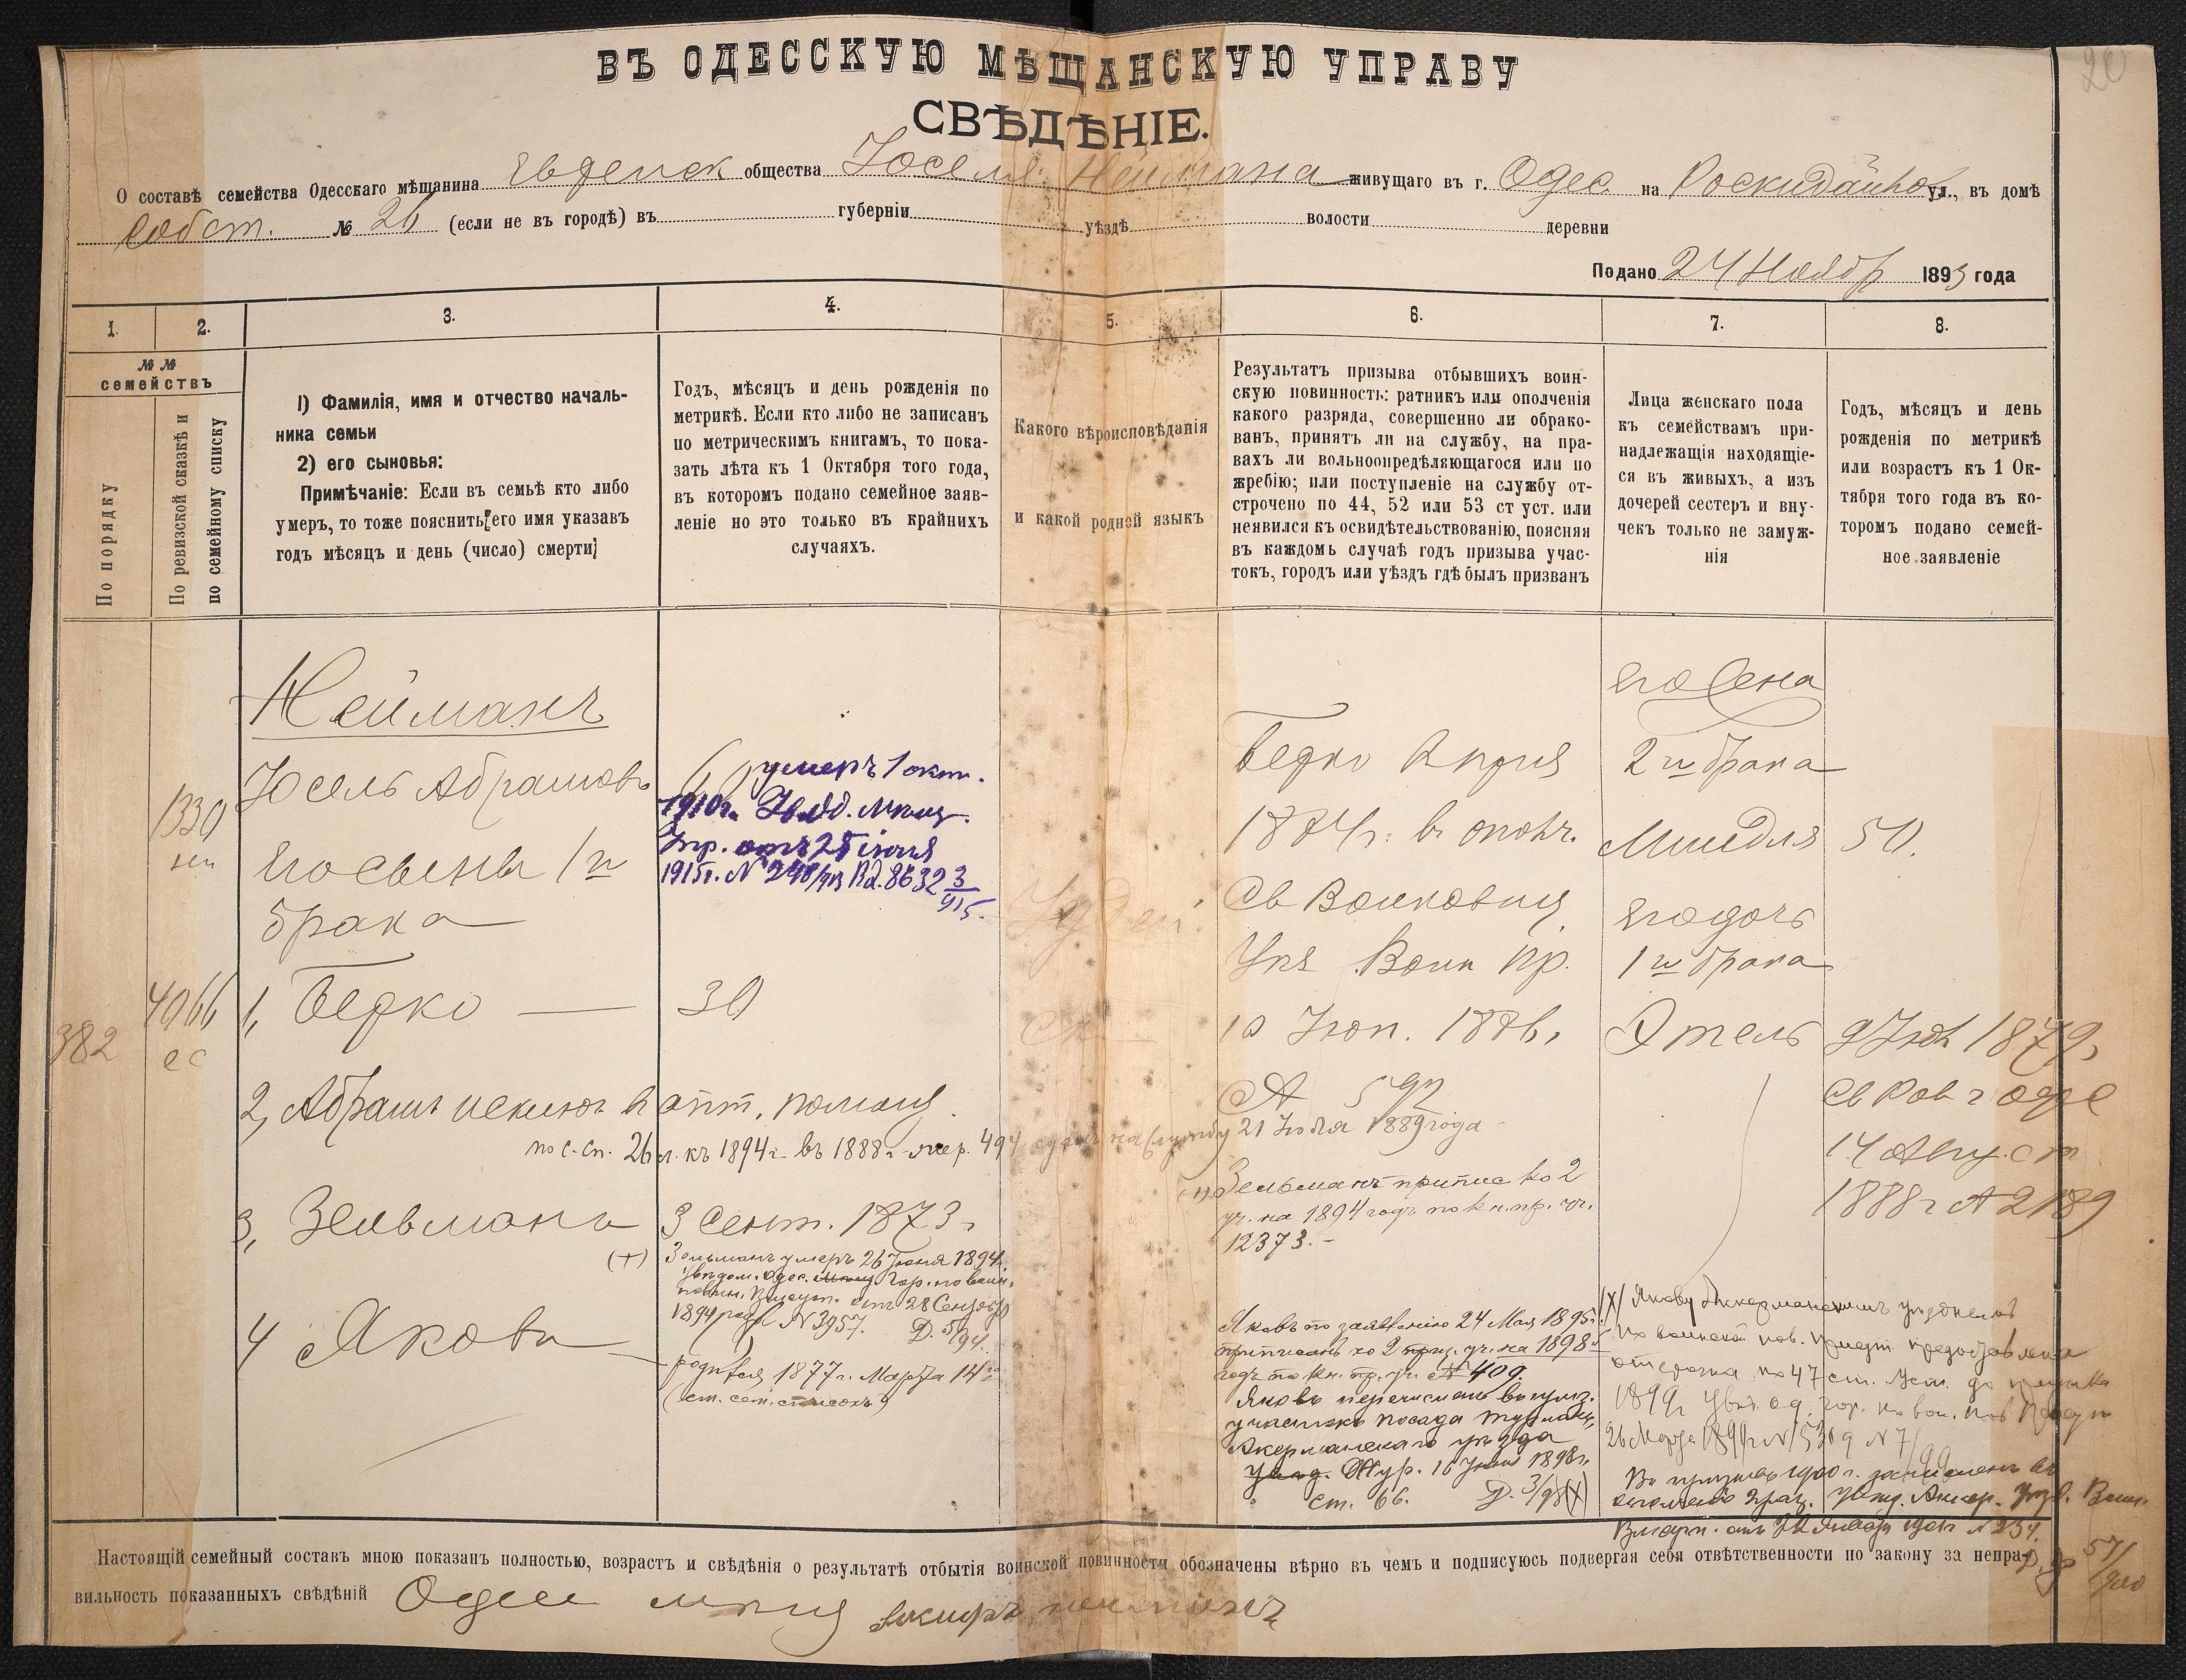 20
ВЪ ОДЕССКУЮ МѢЩАНСКУЮ УПРАВУ
СВѢДѢНІЕ.
О составѣ семейства Одесскаго мѣщанина Еврейск общества Іоселя Неймана живущаго въ г. Одес. на Роскидайнов ул., въ домѣ
Собст. № 26 (если не въ городѣ) въ губерніи уѣздѣ волости деревни
Подано 24 Ноябр 1893 года
1. 2. 3. 4. 5. 6. 7. 8.
№ №
семействъ
По порядку
По ревизской сказкѣ и
по семейному списку
1) Фамилія, имя и отчество началь-
ника семьи
2) его сыновья:
Примѣчаніе: Если въ семьѣ кто либо
умеръ, то тоже пояснить его имя указавъ
годъ мѣсяцъ и день (число) смерти
Годъ, мѣсяцъ и день рожденія по
метрикѣ. Если кто либо не записанъ
по метрическимъ книгамъ, то пока-
зать лѣта къ 1 Октября того года,
въ которомъ подано семейное заяв-
леніе но это только въ крайнихъ
случаяхъ.
Какого вѣроисповѣданія
и какой родной языкъ
Результатъ призыва отбывшихъ воин-
скую повинность: ратникъ или ополченія
какого разряда, совершенно ли обрако-
ванъ, принятъ ли на службу, на пра-
вахъ ли вольноопредѣляющагося или по
жребію; или поступленіе на службу от-
строчено по 44, 52 или 53 ст уст. или
неявился къ освидѣтельствованію, поясняя
въ каждомъ случаѣ годъ призыва учас-
токъ, городъ или уѣздъ гдѣ былъ призванъ
Лица женскаго пола
къ семействамъ при-
надлежащія находящіе-
ся въ живыхъ, а изъ
дочерей сестеръ и вну-
чекъ только не замуж-
нія
Годъ, мѣсяцъ и день
рожденія по метрикѣ
или возрастъ къ 1 Ок-
тября того года въ ко-
торомъ подано семей-
ное заявленіе
1330
382
4066
ес
Нейманъ
Іосель Абрамовъ
его сыны 1й
брака
1, Берко
2, Абрамъ исключ в опт. помощ.
по с. сп. 26 л. къ 1894 г. въ 1888 г. жер. 494 сданъ на службу 21 Іюля 1889 года
3, Зельманъ
(+)
4 Яковъ
60
умеръ 1 окт.
1910 г. Увѣд. Мѣщ.
Упр. отъ 25 іюня
1915 г. № 8632 3/915.
30
3 Сент. 1873 г
Зельманъ умеръ 26 Іюня 1894 г.
Увѣдом. Одес. Гор. по воин.
повин. Присут. отъ 28 Сентябр
1894 года № 3957. Д. 5/94.
родився 1877 г. Марта 14го
(ст. сем. списокъ)
Іудей
Берко
1884 г. в ополч.
Св Воинской
Упр Воин Пр.
10 Іюн. 1886,
№ 592
(+) Зельманъ припис ко 2
уч. на 1894 годъ по кн. пр. уч.
12373.
Яковъ по заявленію 24 Мая 1895 г.
приписанъ ко 2 приз. уч. на 1898
годъ по кн. пр. уч. № 409.
Яковъ перечисленъ въ приз.
участокъ посада Турлаки,
Акерманскаго уѣзда
Жур. 16 Іюня 1898 г.
ст. 66. Д. 3/98 (X)
его жена
2й брака
Миндля 50.
его дочь
1й брака
Этель 9 Іюл 1879,
Св Рав г Одес
14 Август
1888 г № 2189
(X) Якову Аккерманскимъ уѣзднымъ
по воинской пов. присут. предоставлена
отсрочка по 47 ст. Уст. до призыва
1899 г Увѣд. Од. Гор. по вои. пов Присут
26 Марта 1899 г № 1519 № 7/99
Въ призывъ 1900 г. зачисленъ въ
ополченіе Увѣд. Аккер. Уѣзд. Воин.
Присут. отъ 22 Января 1901 г № 234.
57/900
Настоящій семейный составъ мною показанъ полностью, возрастъ и свѣдѣнія о результатѣ отбытія воинской повинности обозначены вѣрно въ чемъ и подписуюсь подвергая себя отвѣтственности по закону за непра-
вильность показанныхъ свѣдѣній Одес мѣщ